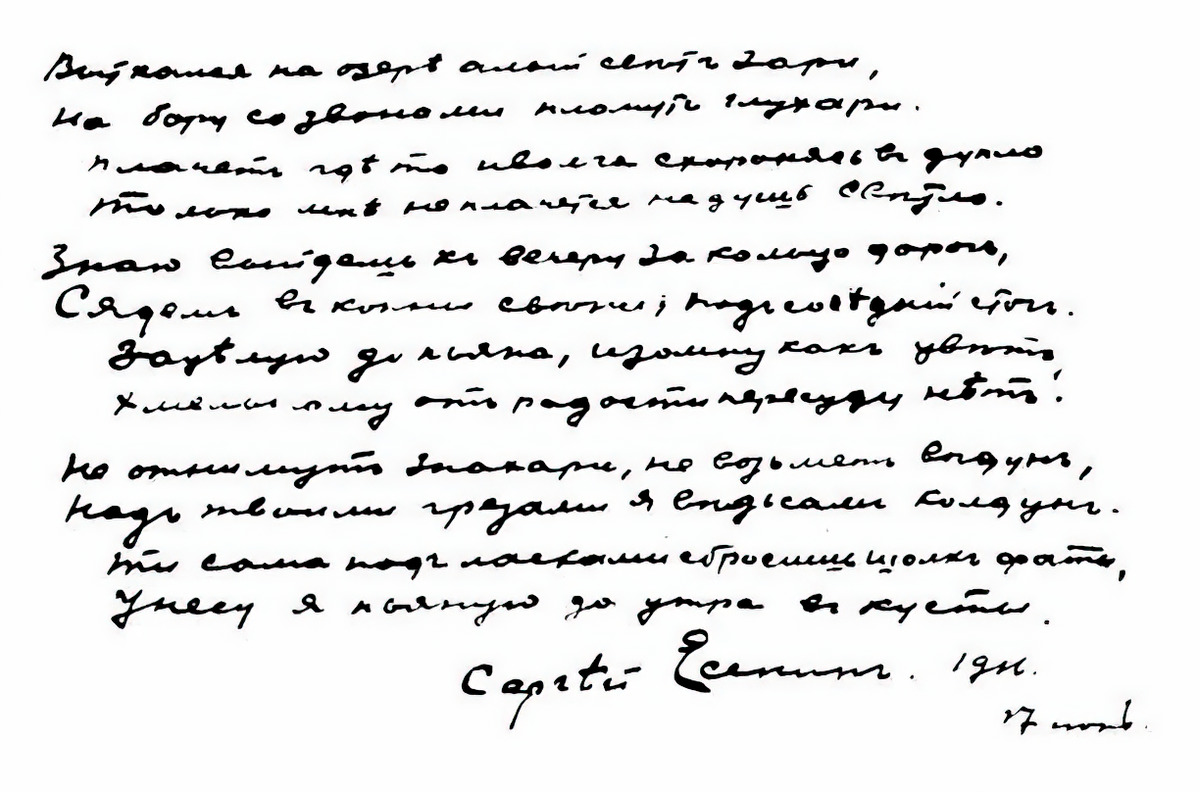 Выткался на озерѣ алый свѣтъ зари,
На бору со звонами плачутъ глухари.
Плачетъ гдѣ то иволга схоронясь въ дупло
Только мнѣ не плачется на душѣ свѣтло.
Знаю выйдешь къ вечеру за кольцо дорогъ,
Сядемъ въ копны свѣжия; подъ сосѣдний стогъ.
Зацѣлую до пьяна, изомну какъ цвѣтъ,
Хмельному отъ радости пересуду нѣтъ!
Не отнимутъ знахари, не возьметъ вѣдунъ,
Надъ твоими грезами я вѣдь самъ колдунъ.
Ты сама подъ ласками сбросишь шолкъ фаты,
Унесу я пьяную до утра въ кусты.
Сергѣй Есенинъ.